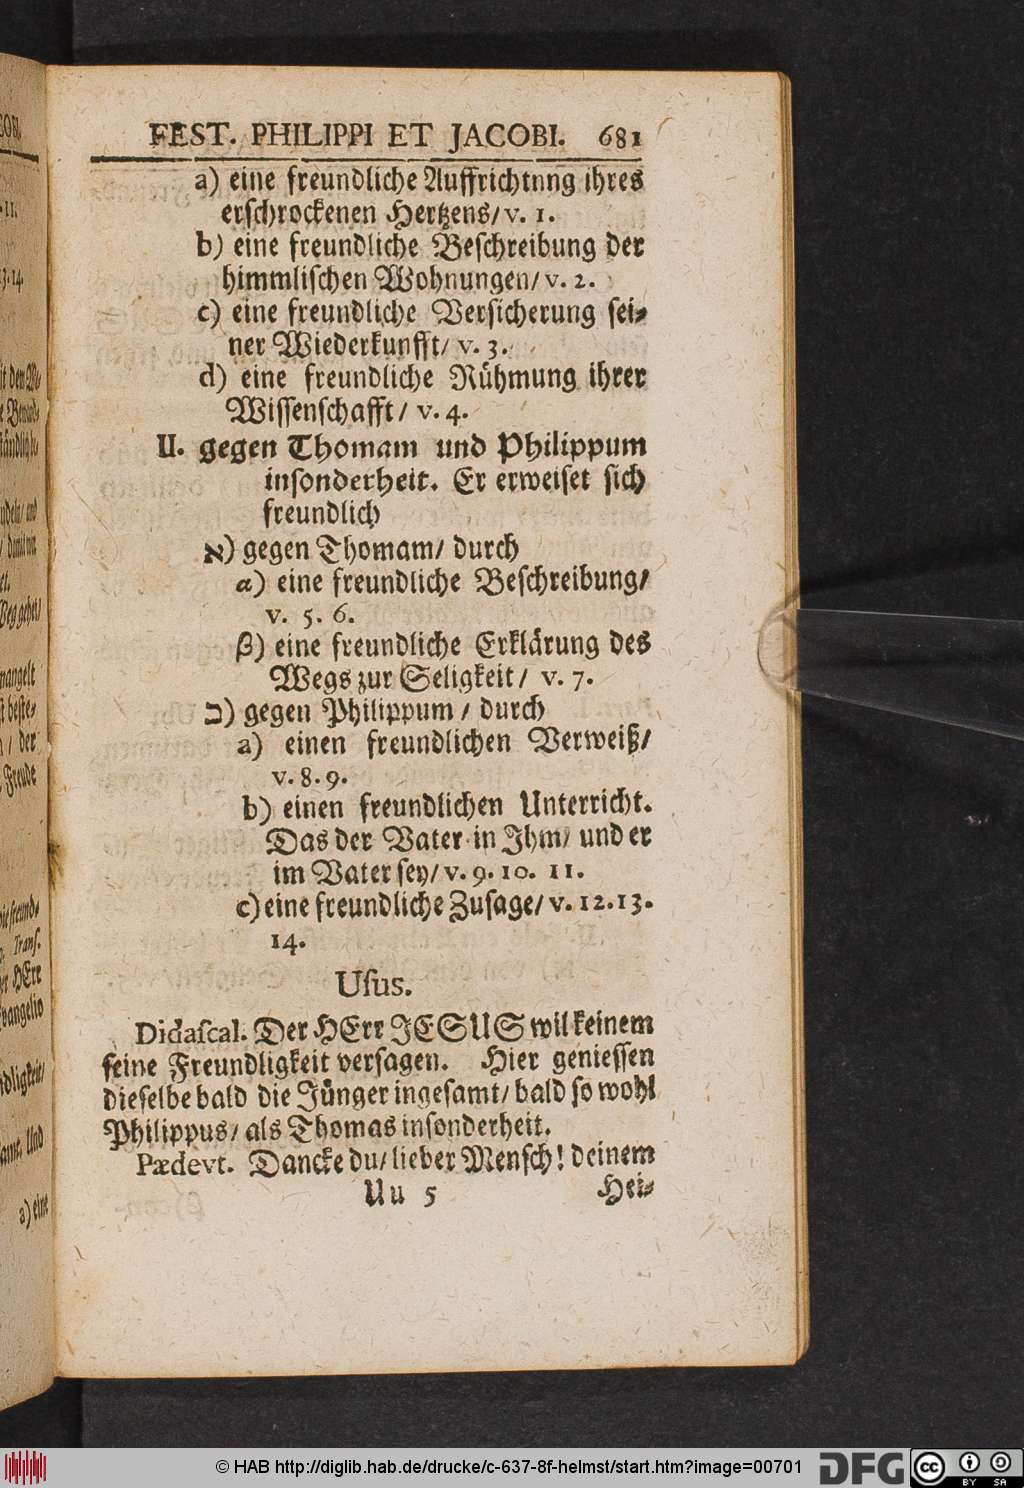 FEST. PHILIPPI ET JACOBI. 681
a) eine freundliche Auffrichtnng ihres
erschrockenen Hertzens/ v. 1.
b) eine freundliche Beschreibung der
himmlischen Wohnungen/ v. 2.
c) eine freundliche Versicherung sei-
ner Wiederkunfft/ v. 3.
d) eine freundliche Rühmung ihrer
Wissenschafft/ v. 4.
II. gegen Thomam und Philippum
insonderheit. Er erweiset sich
freundlich
א) gegen Thomam/ durch
α) eine freundliche Beschreibung/
v. 5. 6.
β) eine freundliche Erklärung des
Wegs zur Seligkeit/ v. 7.
ב) gegen Philippum/ durch
a) einen freundlichen Verweiß/
v. 8. 9.
b) einen freundlichen Unterricht.
Das der Vater in Ihm/ und er
im Vater sey/ v. 9. 10. 11.
c) eine freundliche Zusage/ v. 12. 13.
14.
Usus.
Didascal. Der HErr JESUS wil keinem
seine Freundligkeit versagen. Hier geniessen
dieselbe bald die Jünger ingesamt/ bald so wohl
Philippus/ als Thomas insonderheit.
Pædevt. Dancke du/ lieber Mensch! deinem
Uu 5 Hei-
a) eine
© HAB http://diglib.hab.de/drucke/c-637-8f-helmst/start.htm?image=00701
DFG
cc BY SA